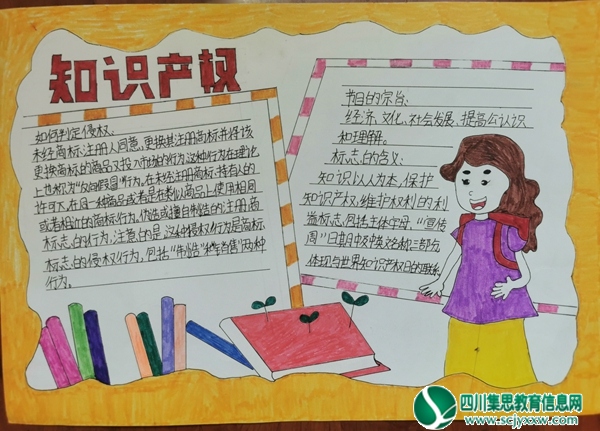 知识产权
如何判定侵权。
未经商标注册人同意,更换其注册商标并将该
更换商标的商品又投入市场的行为。这种行为在理论
上也称为“反向假冒”行为。在未经注册商标持有人的
许可下,在同一种商品或者是在类似商品上使用相同
或者相近的商标行为。伪造或擅自制造的注册商
标标志的行为,注意的是这种侵权行为是商标
标志的侵权行为,包括“制造”和“销售”两种
行为。
节目的宗旨:
经济、文化、社会发展,提高公认识
和理解。
标志的含义:
知识以人为本,保护
知识产权,维护权利的利
益标志,包括主体字母,“宣传
周”日期中英
体现与世界知识产权日的联系
四川集思教育信息网
www.scjyxxw.com